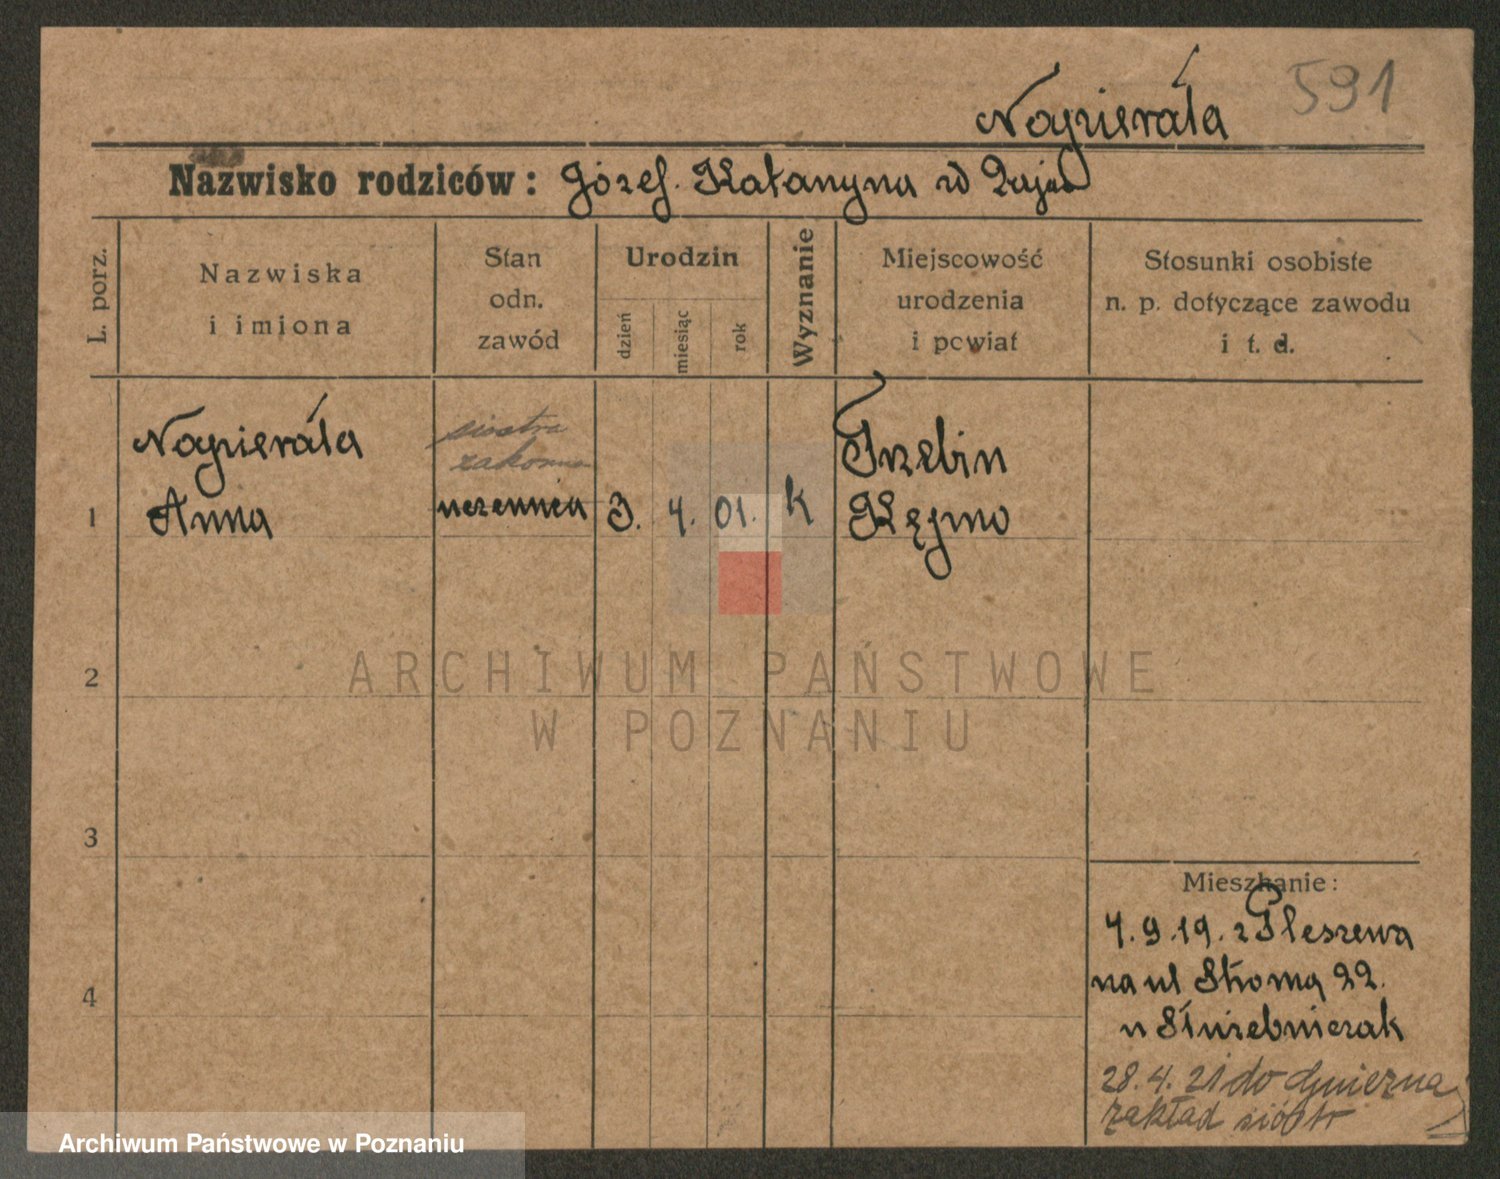 591
Napierała
Nazwisko rodziców: Józef. Katarzyna zd
L. porz.
Nazwiska i imiona
Stan odn. zawód
Urodzin
dzień
miesiąc
rok
Wyznanie
Miejscowość urodzenia i powiat
Stosunki osobiste n. p. dotyczące zawodu i t. d.
1
Napierała
Anna
siostra
zakonna
uczennica
3. 4. 01. k
Trzebin
Kępno
2
3
4
Mieszkanie:
4. 9. 19. z Pleszewa
na ul Stroma 22.
u Służebniczak
28. 4. 21 do Gniezna
zakład sióstr
ARCHIWUM PAŃSTWOWE
W POZNANIU
Archiwum Państwowe w Poznaniu